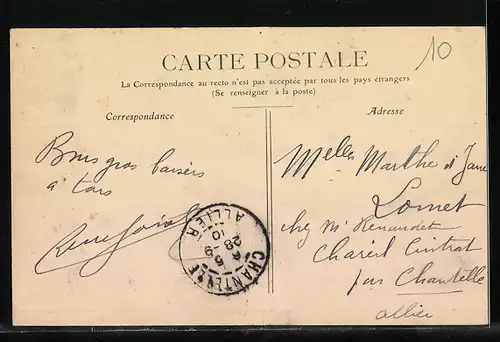 10
CARTE POSTALE
La Correspondance au recto n'est pas acceptée par tous les pays étrangers
(Se renseigner à la poste)
Correspondance
Adresse
Bons gros baisers
à tous
Melles Marthe et Jane
Lomet
chez Mr Renaudet
Chareil Cintrat
par Chantelle
Allier
CHANTELLE
ALLIER
5 -9
28
10